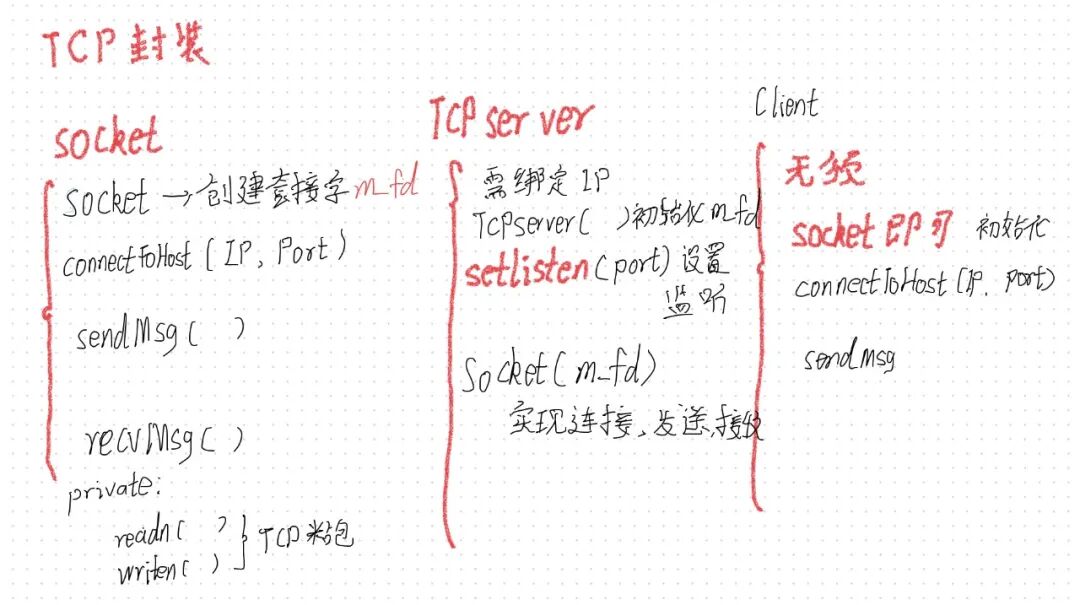 TCP封装
socket
socket → 创建套接字 m_fd
connectToHost(IP, Port)
sendMsg( )
recvMsg( )
private:
readn( )
writen( )
TCP粘包
TCPserver
需绑定IP
TCPserver( )初始化m_fd
setlisten(port)设置
监听
Socket(m_fd)
实现连接、发送、接收
Client
无须
socket即可 初始化
connectToHost(IP. Port)
sendMsg